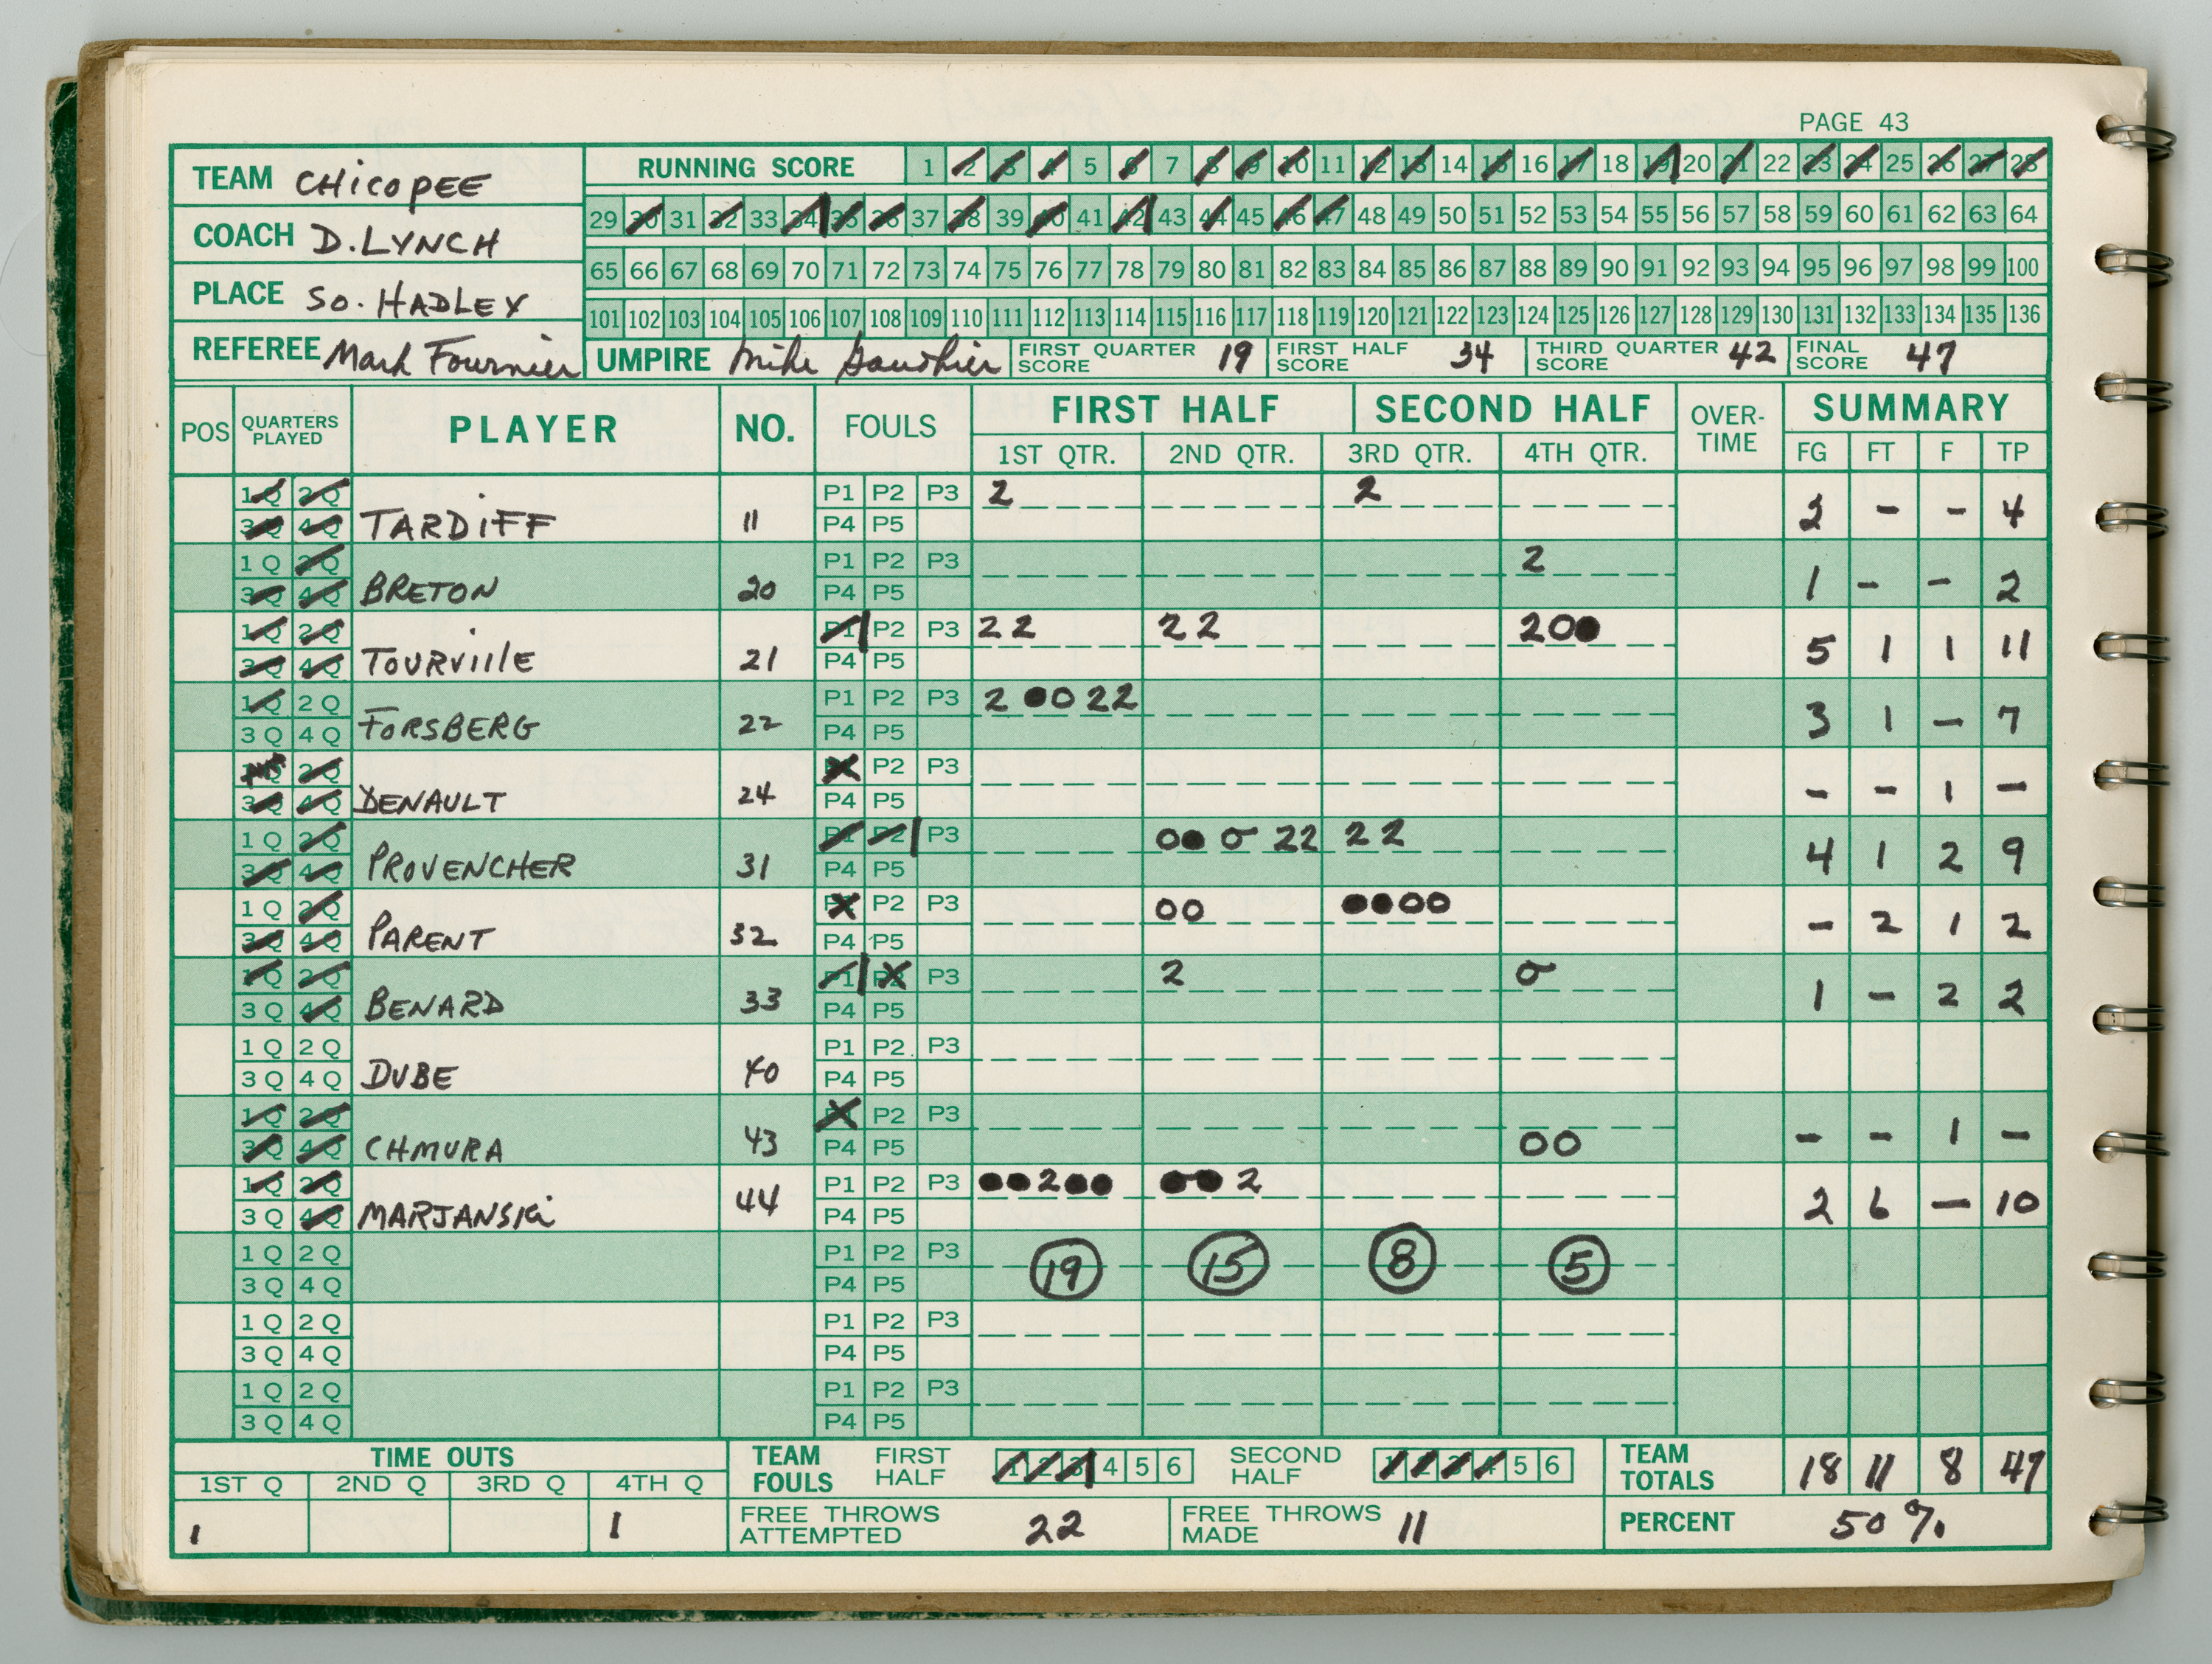 PAGE 43
TEAM CHICOPEE
COACH D. LYNCH
PLACE SO. HADLEY
REFEREE Mark Fournier
RUNNING SCORE 1 2 3 4 5 6 7 8 9 10 11 12 13 14 15 16 17 18 19 20 21 22 23 24 25 26 27 28
29 30 31 32 33 34 35 36 37 38 39 40 41 42 43 44 45 46 47 48 49 50 51 52 53 54 55 56 57 58 59 60 61 62 63 64
65 66 67 68 69 70 71 72 73 74 75 76 77 78 79 80 81 82 83 84 85 86 87 88 89 90 91 92 93 94 95 96 97 98 99 100
101 102 103 104 105 106 107 108 109 110 111 112 113 114 115 116 117 118 119 120 121 122 123 124 125 126 127 128 129 130 131 132 133 134 135 136
UMPIRE Mike Gauthier FIRST QUARTER SCORE 19 FIRST HALF SCORE 34 THIRD QUARTER SCORE 42 FINAL SCORE 47
POS QUARTERS PLAYED PLAYER NO. FOULS FIRST HALF SECOND HALF OVER-TIME SUMMARY
1ST QTR. 2ND QTR. 3RD QTR. 4TH QTR. FG FT F TP
1Q 2Q P1 P2 P3 2 2
3Q 4Q TARDIFF 11 P4 P5 2 - - 4
1Q 2Q P1 P2 P3 2
3Q 4Q BRETON 20 P4 P5 1 - - 2
1Q 2Q P1 P2 P3 22 22 20●
3Q 4Q TOURVILLE 21 P4 P5 5 1 1 11
1Q 2Q P1 P2 P3 2 ●0 22
3Q 4Q FORSBERG 22 P4 P5 3 1 - 7
1Q 2Q P1 P2 P3
3Q 4Q DENAULT 24 P4 P5 - - 1 -
1Q 2Q P1 P2 P3 0● 0 22 22
3Q 4Q PROVENCHER 31 P4 P5 4 1 2 9
1Q 2Q P1 P2 P3 00 ●●00
3Q 4Q PARENT 32 P4 P5 - 2 1 2
1Q 2Q P1 P2 P3 2 0
3Q 4Q BENARD 33 P4 P5 1 - 2 2
1Q 2Q P1 P2 P3
3Q 4Q DUBE 40 P4 P5
1Q 2Q P1 P2 P3
3Q 4Q CHMURA 43 P4 P5 00 - - 1 -
1Q 2Q P1 P2 P3 ●●2●● ●●2
3Q 4Q MARJANSKI 44 P4 P5 2 6 - 10
1Q 2Q P1 P2 P3 19 15 8 5
3Q 4Q P4 P5
1Q 2Q P1 P2 P3
3Q 4Q P4 P5
1Q 2Q P1 P2 P3
3Q 4Q P4 P5
TIME OUTS
1ST Q 2ND Q 3RD Q 4TH Q
1 1
TEAM FOULS FIRST HALF 1 2 3 4 5 6 SECOND HALF 1 2 3 4 5 6
TEAM TOTALS 18 11 8 47
FREE THROWS ATTEMPTED 22 FREE THROWS MADE 11
PERCENT 50%